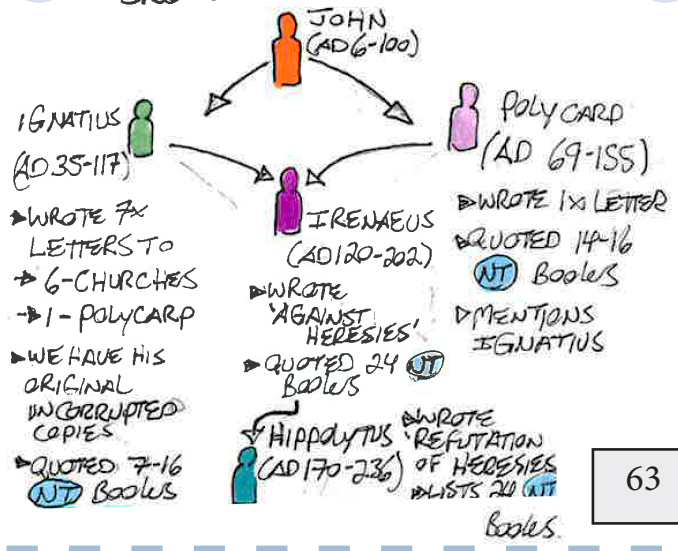 JOHN
(AD6-100)
IGNATIUS
(AD35-117)
▶WROTE 7x
LETTERS TO
→ 6-CHURCHES
→ 1-POLYCARP
▶WE HAVE HIS
ORIGINAL
UNCORRUPTED
COPIES
▶QUOTED 7-16
NT Books
POLYCARP
(AD 69-155)
▶WROTE 1x LETTER
▶QUOTED 14-16
NT Books
▶MENTIONS
IGNATIUS
IRENAEUS
(AD120-202)
▶WROTE
'AGAINST
HERESIES'
▶QUOTED 24 NT
Books
HIPPOLYTUS
(AD170-236)
▶WROTE
'REFUTATION
OF HERESIES
▶LISTS 24 NT
Books.
63